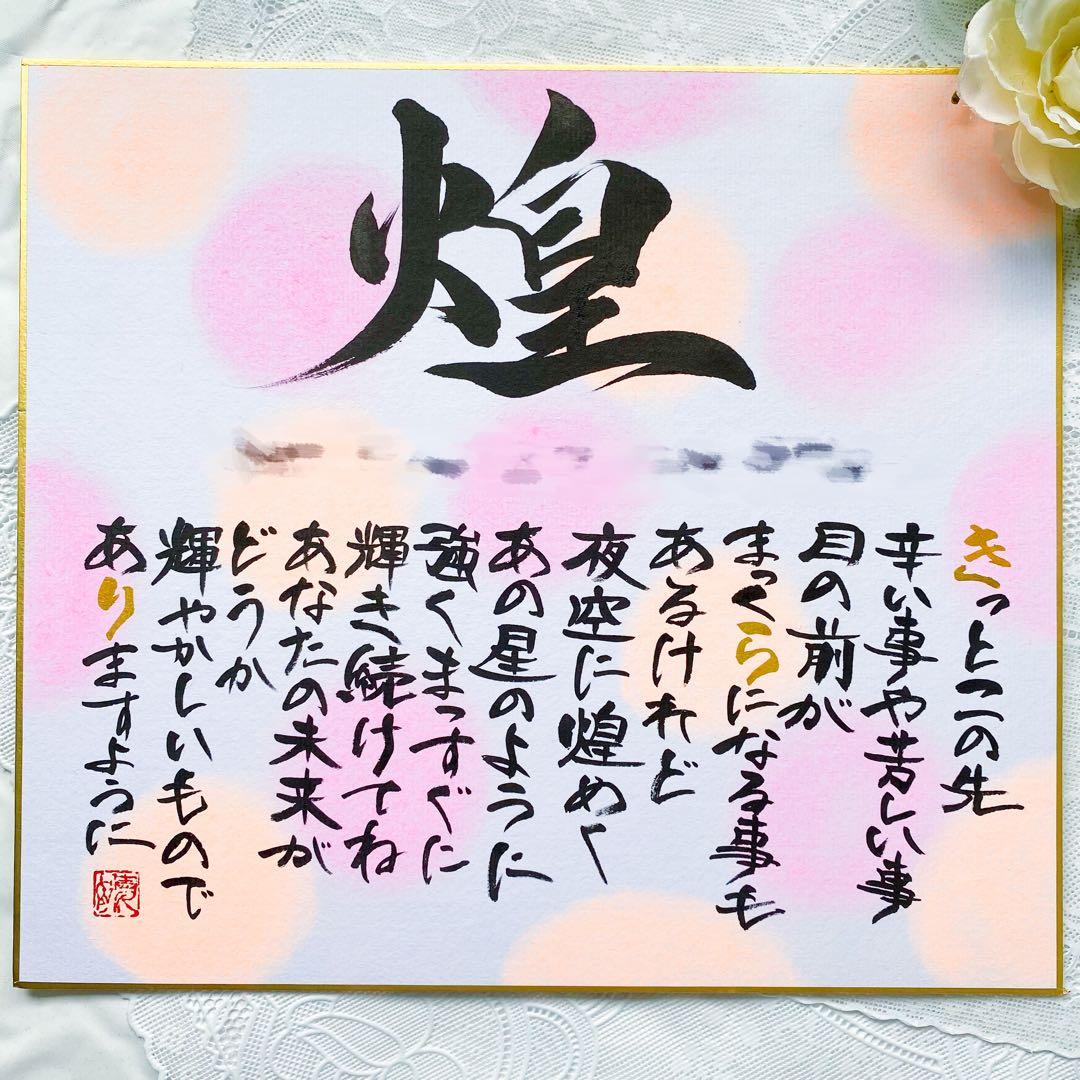 煌
きっとこの先
辛い事や苦しい事
目の前が
まっくらになる事も
あるけれど
夜空に煌めく
あの星のように
強くまっすぐに
輝き続けてね
あなたの未来が
どうか
輝やかしいもので
ありますように